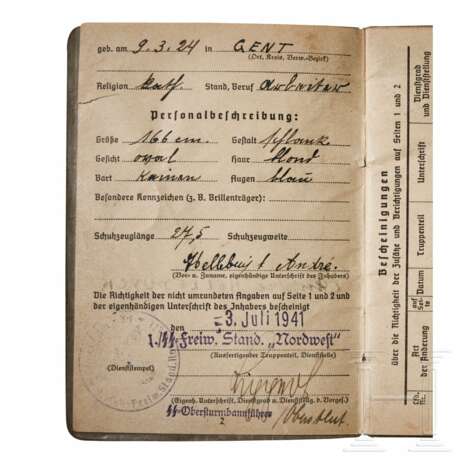 geb. am 9.3.24 in GENT
(Ort, Kreis, Verw.-Bezirk)
Religion kath. Stand, Beruf Arbeiter
Personalbeschreibung:
Größe 166 cm. Gestalt schlank
Gesicht oval Haar blond
Bart keinen Augen blau
Besondere Kennzeichen (z. B. Brillenträger):
Schuhzeuglänge 27,5 Schuhzeugweite
Hellebuit André.
(Vor- u. Zuname, eigenhändige Unterschrift des Inhabers)
Die Richtigkeit der nicht umrandeten Angaben auf Seite 1 und 2 und
der eigenhändigen Unterschrift des Inhabers bescheinigt
den -3. Juli 1941
1./SS-Freiw. Stand. „Nordwest"
(Ausfertigender Truppenteil, Dienststelle)
(Dienststempel)
Freiw. Stand.
(Eigenh. Unterschrift, Dienstgrad u. Dienststllg. d. Vorges.)
SS-Obersturmbannführer
2
Bescheinigungen
über die Richtigkeit der Zusätze und Berichtigungen auf Seiten 1 und 2
Lfd. Nr.
Art der Änderung
auf Seite
Datum
Truppenteil
Unterschrift
Dienstgrad und Dienststellung